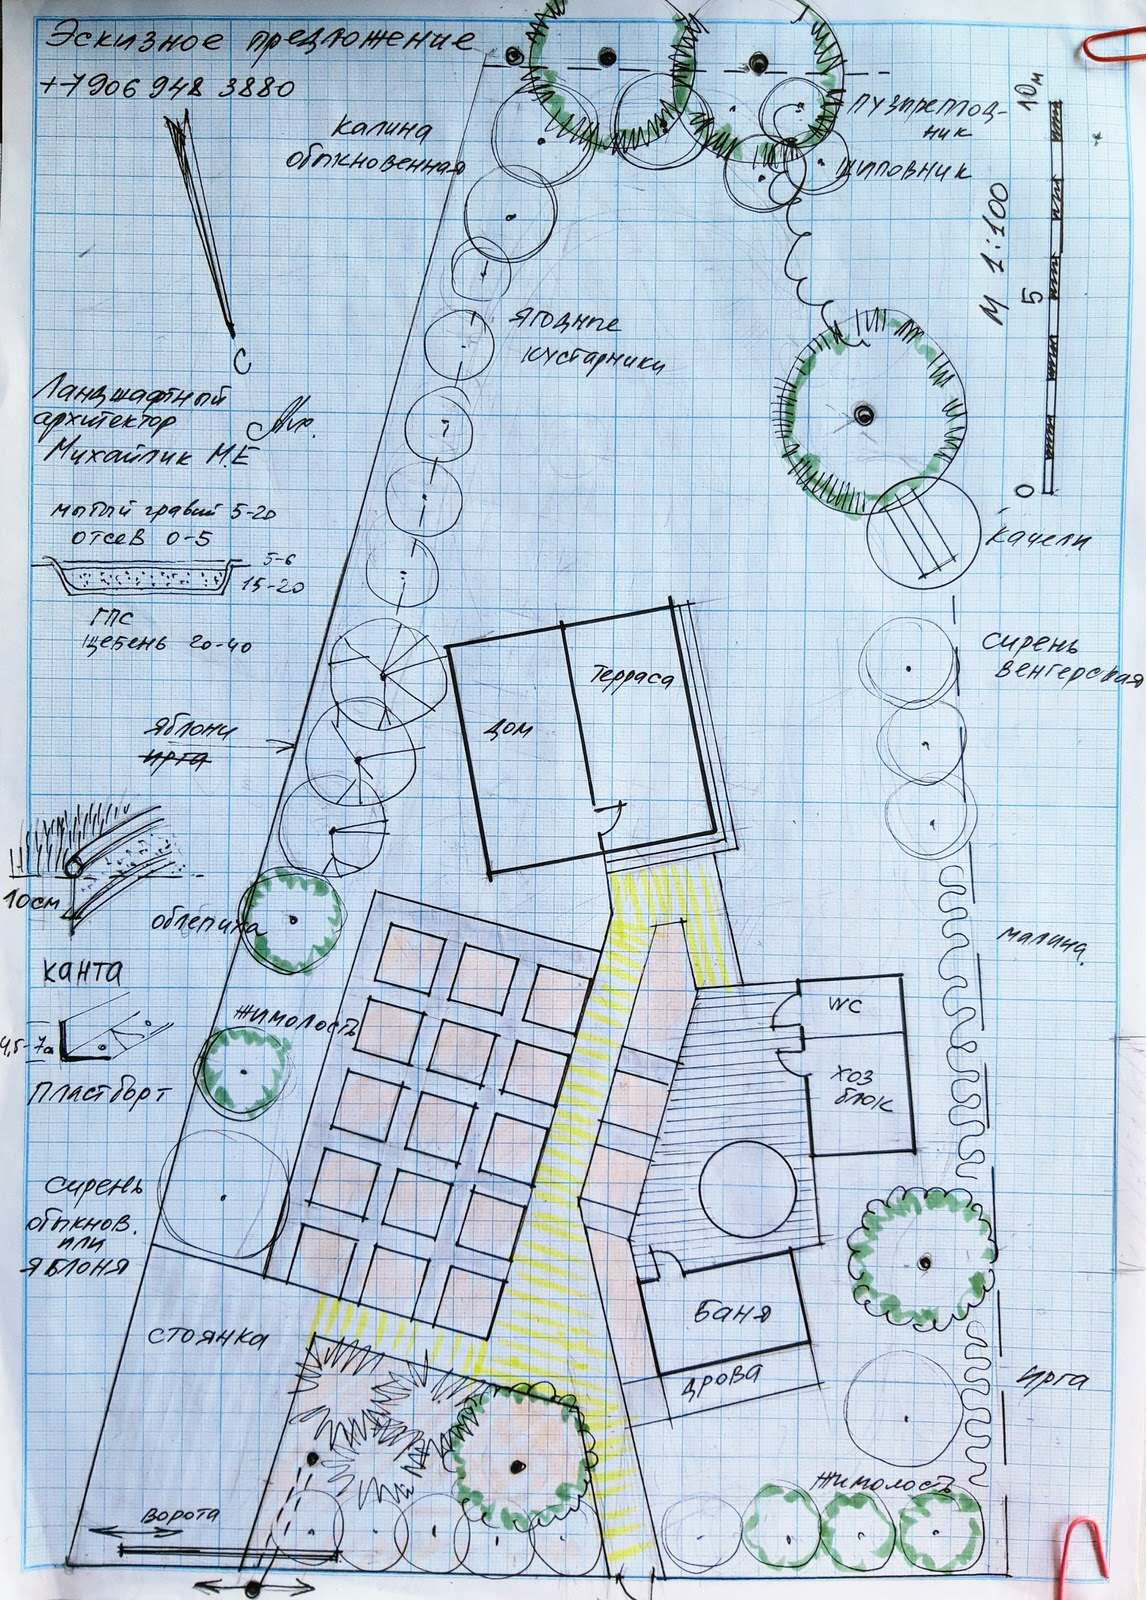 Эскизное предложение
+7 906 948 3880
калина
обыкновенная
пузыреплод-
ник
шиповник
10м
М 1:100
5
0
ягодные
кустарники
С
Ландшафтный
архитектор
Михайлик М.Е
мытый гравий 5-20
отсев 0-5
5-6
15-20
ГПС
щебень 20-40
качели
сирень
венгерская
Терраса
дом
яблони
ирга
10см
облепиха
малина
канта
жимолость
WC
хоз
блок
пластборт
сирень
обыкнов.
или
яблоня
стоянка
Баня
дрова
ирга
жимолость
ворота